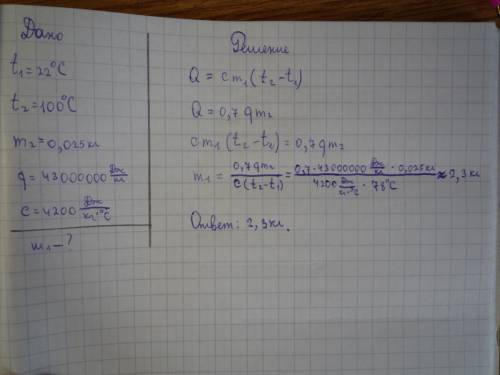 Дано
t₁=22°C
t₂=100°C
m₂=0,025кг
q=43000000 Дж/кг
c=4200 Дж/кг·°C
m₁-?
Решение
Q = cm₁(t₂-t₁)
Q = 0,7qm₂
cm₁(t₂-t₁)=0,7qm₂
m₁ = 0,7qm₂/c(t₂-t₁) = 0,7·43000000 Дж/кг · 0,025кг/4200 Дж/кг·°C · 78°C ≈ 2,3кг
Ответ: 2,3кг.